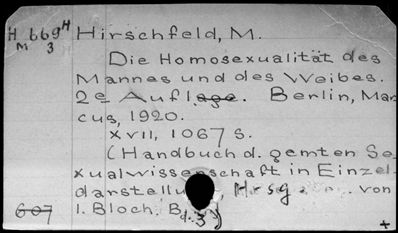 H 669 H Hirschfeld, M.
M 3
Die Homosexualität des
Mannes und des Weibes.
2e Auflage. Berlin, Mar
cus, 1920.
XVII, 1067 s.
(Handbuch d. gemten Se
xualwissenschaft in Einzel
darstellu Hrsg. von
607 I. Bloch, Bd. 3)